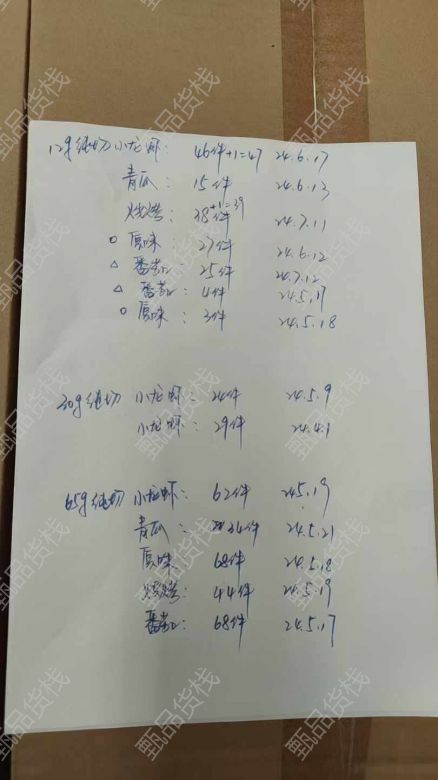 12g纯切小龙虾: 46件+1=47 24.6.17
青瓜: 15件 24.6.13
烧烤: 38件+1=39 24.7.11
○ 原味: 27件 24.6.12
△ 番茄: 25件 24.7.12
△ 番茄: 4件 24.5.17
○ 原味: 3件 24.5.18
30g纯切 小龙虾: 24件 24.5.9
小龙虾: 29件 24.4.1
65g纯切 小龙虾: 62件 24.5.19
青瓜: 34件 24.5.21
原味 68件 24.5.18
烧烤: 44件 24.5.19
番茄: 68件 24.5.17
甄品货栈